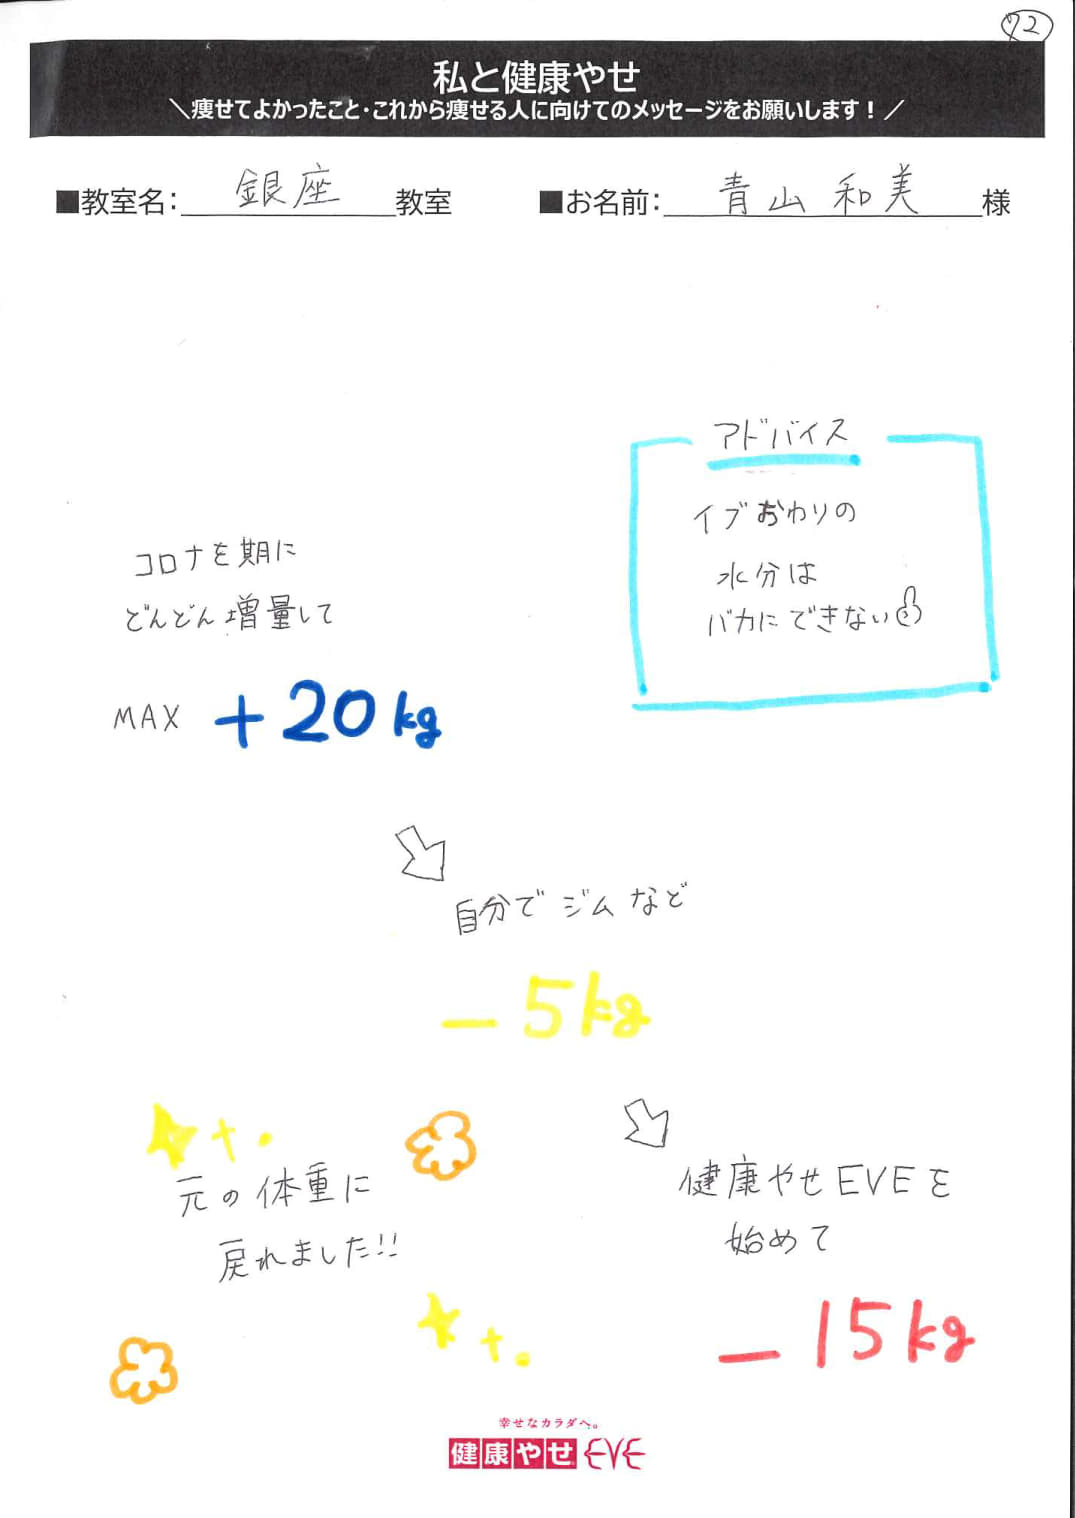 72
私と健康やせ
＼痩せてよかったこと・これから痩せる人に向けてのメッセージをお願いします！／
■教室名：銀座教室
■お名前：青山 和美様
アドバイス
イブおわりの
水分は
バカにできない
コロナを期に
どんどん増量して
MAX +20kg
自分でジムなど
-5kg
健康やせEVEを
始めて
-15kg
元の体重に
戻れました!!
幸せなカラダへ。
健康やせEVE